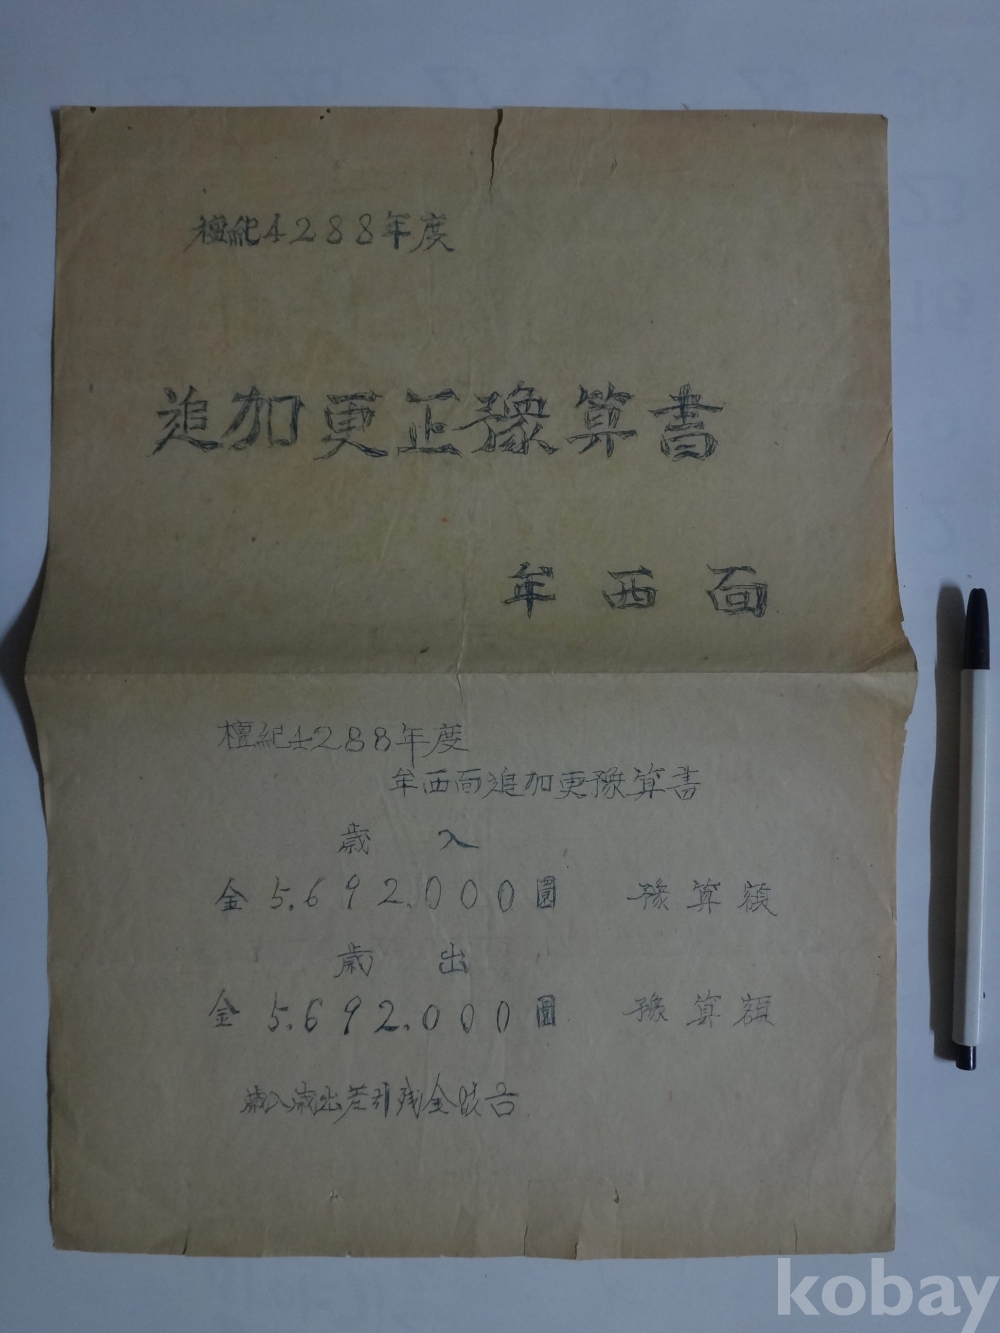 檀紀4288年度
追加更正豫算書
牟西面
檀紀4288年度
牟西面追加更豫算書
歲入
金 5.692.000圓 豫算額
歲出
金 5.692.000圓 豫算額
歲入歲出差引残金
kobay